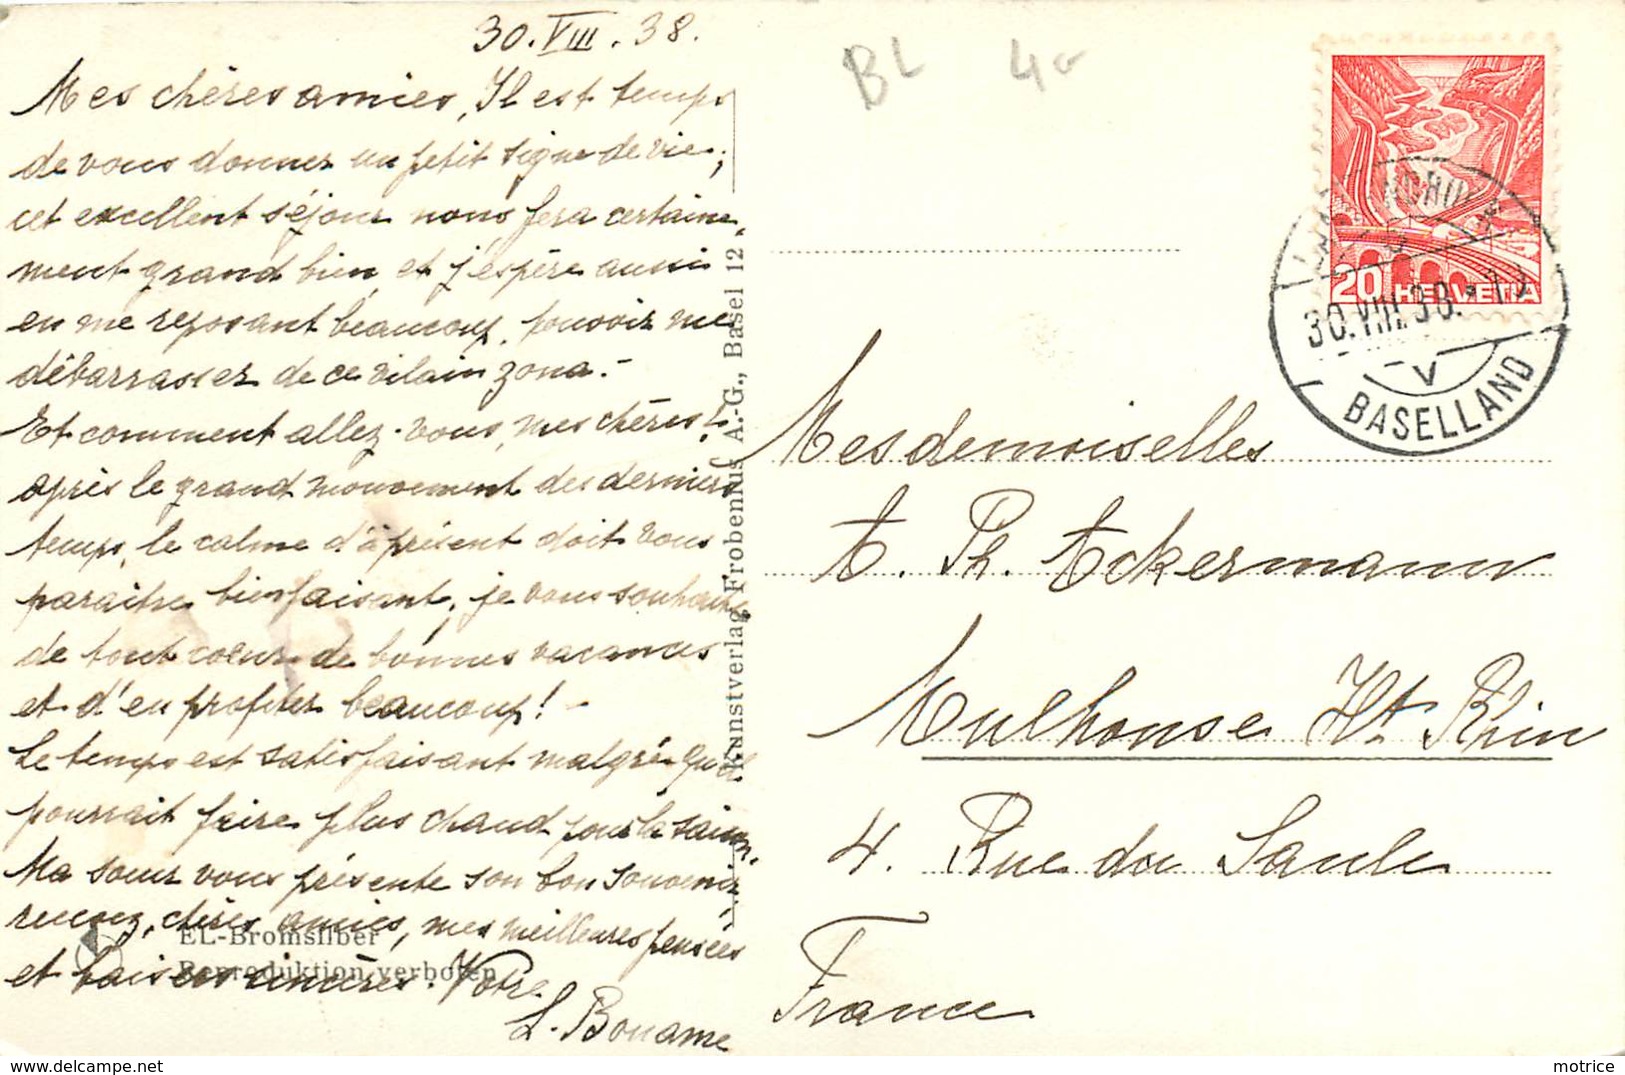 30.VIII.38.
Mes chères amies, Il est temps
de vous donner un petit signe de vie;
cet excellent séjour nous fera certaine„
ment grand bien, et j'espère aussi
en me reposant beaucoup, pouvoir me
débarrasser de ce vilain zona.-
Et comment allez-vous, mes chères?
après le grand mouvement des derniers
temps, le calme d'à présent doit vous
paraître bienfaisant, je vous souhaite
de tout coeur de bonnes vacances
et d'en profiter beaucoup! -
Le temps est satisfaisant malgré qu'il
pourrait faire plus chaud pour la saison.
Ma soeur vous présente son bon souvenir,
recevez, chères amies, mes meilleures pensées
et baisers sincères. Votre
L. Bouame
EL-Bromsilber
Reproduktion verboten
Kunstverlag Frobenius A.-G., Basel 12
BL 4-
20 HELVETIA
30.VIII.38.
V
BASELLAND
Mesdemoiselles
E. Ph. Ackermann
Mulhouse Ht. Rhin
4. Rue du Saule
France
motrice